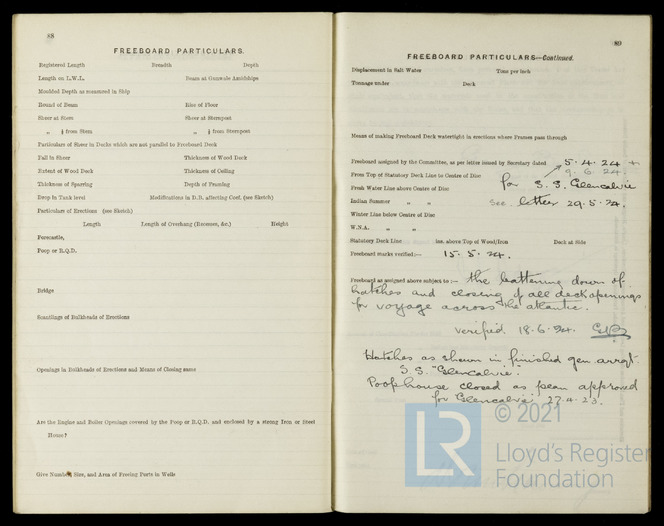 88
FREEBOARD PARTICULARS.
Registered Length Breadth Depth
Length on L.W.L. Beam at Gunwale Amidships
Moulded Depth as measured in Ship
Round of Beam Rise of Floor
Sheer at Stem Sheer at Sternpost
„ ⅛ from Stem „ ⅛ from Sternpost
Particulars of Sheer in Decks which are not parallel to Freeboard Deck
Fall in Sheer Thickness of Wood Deck
Extent of Wood Deck Thickness of Ceiling
Thickness of Sparring Depth of Framing
Drop in Tank level Modifications in D.B. affecting Coef. (see Sketch)
Particulars of Erections (see Sketch)
Length Length of Overhang (Recesses, &c.) Height
Forecastle,
Poop or R.Q.D.
Bridge
Scantlings of Bulkheads of Erections
Openings in Bulkheads of Erections and Means of Closing same
Are the Engine and Boiler Openings covered by the Poop or R.Q.D. and enclosed by a strong Iron or Steel
House?
Give Number, Size, and Area of Freeing Ports in Wells
89
FREEBOARD PARTICULARS—Continued.
Displacement in Salt Water Tons per inch
Tonnage under Deck
Means of making Freeboard Deck watertight in erections where Frames pass through
Freeboard assigned by the Committee, as per letter issued by Secretary dated 5.4.24 +
9.6.24.
From Top of Statutory Deck Line to Centre of Disc
for S.S. Glencalvie
Fresh Water Line above Centre of Disc
Indian Summer „ „ See letter 29.5.24.
Winter Line below Centre of Disc
W.N.A. „ „
Statutory Deck Line ins. above Top of Wood/Iron Deck at Side
Freeboard Marks verified:— 15.5.24.
Freeboard as assigned above subject to:— the battening down of
hatches and closing of all deck openings
for voyage across the atlantic.
Verified 18.6.24.
Hatches as shown in finished gen. arrgt.
S.S. "Glencalvie".
Poop house closed as plan approved
for Glencalvie 27.4.23.
© 2021
LR
Lloyd's Register
Foundation